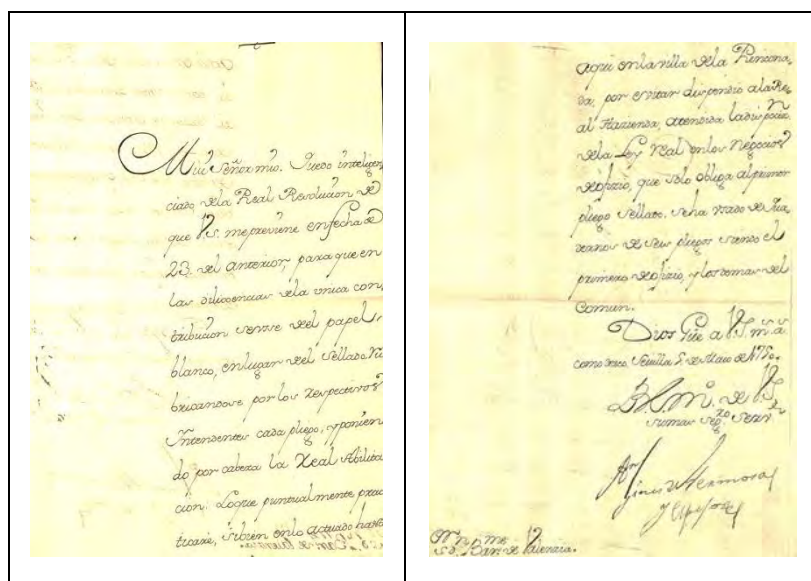 Mui Señor mio. Quedo inteligen
ciado dela Real Resolucion de
que V.S. me previene en fecha de
23. del anterior, para que en
las diligencias dela unica con,
tribucion se use del papel
blanco, en lugar del sellado ru
bricandose por los respectivos
Intendentes cada pliego, y ponien
do por cabeza la Real Abilita
cion. Loque puntualmente prac
ticaré, si bien en lo actuado hasta
aqui en la villa dela
da, por evitar dispendio ala Re
al Hazienda, atendida la dispocion
dela Ley Real en los negocios
de ofizio, que solo obliga al primer
pliego sellado. se ha usado de Qua
dernos de seis pliegos siendo el
primero de ofizio, y los demas del
Comun.
Dios Gūe a V.S. m.s a.s
como deseo. Sevilla 5. de Maio de 1750.
B.L.M. de V.S.
su mas seg.ro serv.r
Gines de Hermosa
y Espejo
S.or Bar.n de Valenzia.